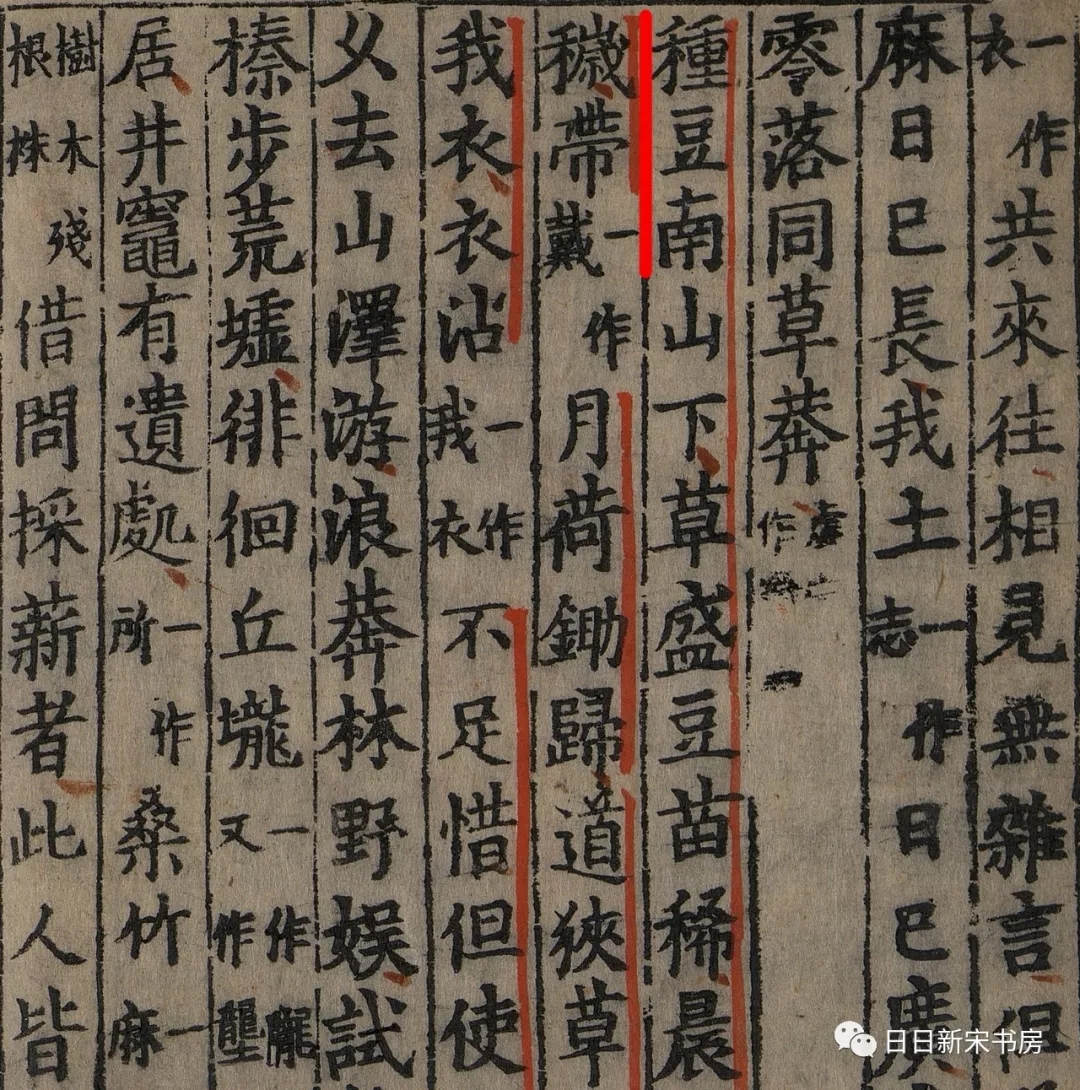 一作衣共來往相見無雜言但
麻日已長我土一作志日已廣
零落同草莽
種豆南山下草盛豆苗稀晨
穢帶一作戴月荷鋤歸道狹草
我衣衣沾一作我衣不足惜但使
乆去山澤游浪莽林野娛試
榛步荒墟徘徊丘壠一作龓又作壟
居井竈有遺處一作所桑竹一麻
樹木殘根株借問採薪者此人皆
日日新宋书房